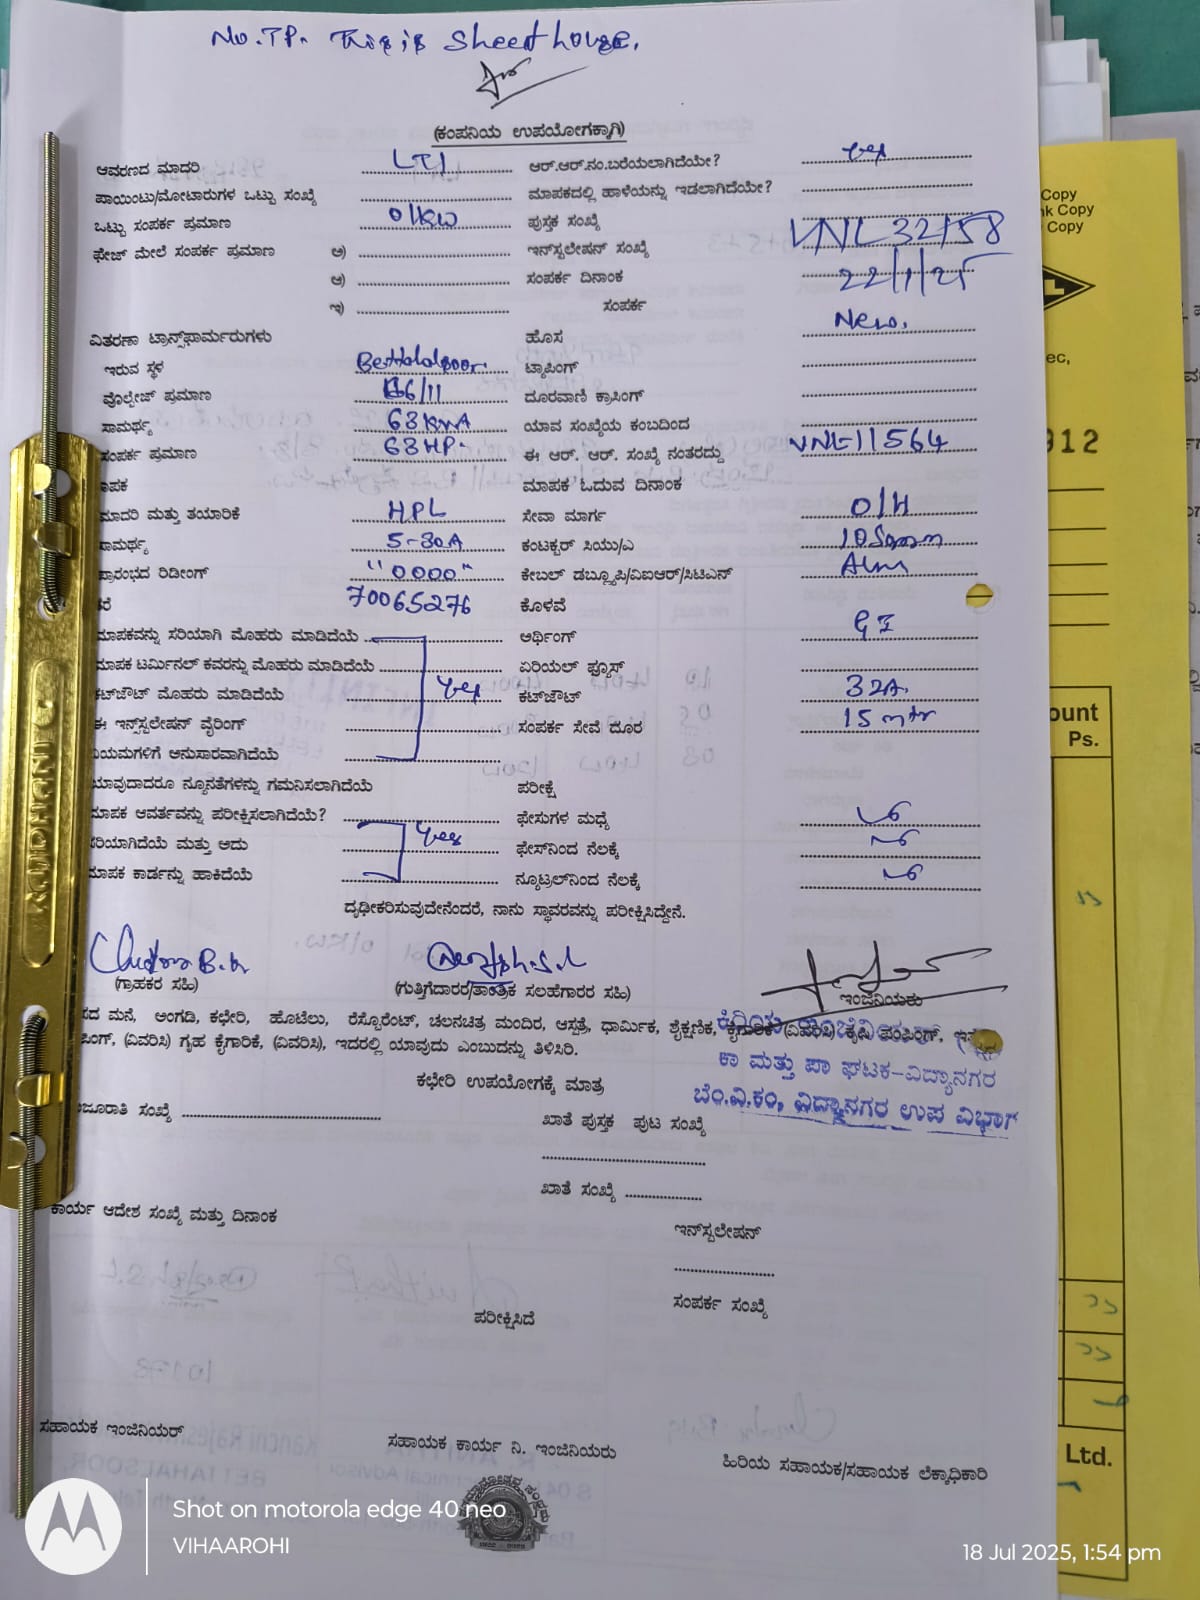 No. TP. This is Sheet house.
(ಕಂಪನಿಯ ಉಪಯೋಗಕ್ಕಾಗಿ)
ಆವರಣದ ಮಾದರಿ LT1 ಆರ್.ಆರ್.ನಂ.ಬರೆಯಲಾಗಿದೆಯೇ? yes
ಪಾಯಿಂಟು/ಮೋಟಾರುಗಳ ಒಟ್ಟು ಸಂಖ್ಯೆ ಮಾಪಕದಲ್ಲಿ ಹಾಳೆಯನ್ನು ಇಡಲಾಗಿದೆಯೇ?
ಒಟ್ಟು ಸಂಪರ್ಕ ಪ್ರಮಾಣ 01KW ಪುಸ್ತಕ ಸಂಖ್ಯೆ
ಫೇಜ್ ಮೇಲೆ ಸಂಪರ್ಕ ಪ್ರಮಾಣ ಅ) ಇನ್‌ಸ್ಟಲೇಷನ್ ಸಂಖ್ಯೆ VNL32158
ಆ) ಸಂಪರ್ಕ ದಿನಾಂಕ 22/1/25
ಇ) ಸಂಪರ್ಕ
ವಿತರಣಾ ಟ್ರಾನ್ಸ್‌ಫಾರ್ಮರುಗಳು ಹೊಸ New.
ಇರುವ ಸ್ಥಳ Bettahalsoor. ಟ್ಯಾಪಿಂಗ್
ವೊಲ್ಟೇಜ್ ಪ್ರಮಾಣ 66/11 ದೂರವಾಣಿ ಕ್ರಾಸಿಂಗ್
ಸಾಮರ್ಥ್ಯ 63KVA ಯಾವ ಸಂಖ್ಯೆಯ ಕಂಬದಿಂದ
ಸಂಪರ್ಕ ಪ್ರಮಾಣ 63HP. ಈ ಆರ್. ಆರ್. ಸಂಖ್ಯೆ ನಂತರದ್ದು VNL11564
ಾಪಕ ಮಾಪಕ ಓದುವ ದಿನಾಂಕ
ಮಾದರಿ ಮತ್ತು ತಯಾರಿಕೆ HPL ಸೇವಾ ಮಾರ್ಗ O/H
ಸಾಮರ್ಥ್ಯ 5-30A ಕಂಟಕ್ಟರ್ ಸಿಯು/ಎ 10Sqmm
ಪ್ರಾರಂಭದ ರಿಡೀಂಗ್ "0000" ಕೇಬಲ್ ಡಬ್ಲ್ಯೂಪಿ/ವಿಐಆರ್/ಸಿಟಿಎನ್ Alm
ತರೆ 70065276 ಕೊಳವೆ
ಮಾಪಕವನ್ನು ಸರಿಯಾಗಿ ಮೊಹರು ಮಾಡಿದೆಯೆ ಅರ್ಥಿಂಗ್ GI
ಮಾಪಕ ಟರ್ಮಿನಲ್ ಕವರನ್ನು ಮೊಹರು ಮಾಡಿದೆಯೆ ಏರಿಯಲ್ ಫ್ಯೂಸ್
ಕಟ್‌ಔಟ್ ಮೊಹರು ಮಾಡಿದೆಯೆ yes ಕಟ್‌ಔಟ್ 32A.
ಈ ಇನ್‌ಸ್ಟಲೇಷನ್ ವೈರಿಂಗ್ ಸಂಪರ್ಕ ಸೇವೆ ದೂರ 15 mtr
ನಿಯಮಗಳಿಗೆ ಅನುಸಾರವಾಗಿದೆಯೆ
ಯಾವುದಾದರೂ ನ್ಯೂನತೆಗಳನ್ನು ಗಮನಿಸಲಾಗಿದೆಯೆ ಪರೀಕ್ಷೆ
ಮಾಪಕ ಆವರ್ತವನ್ನು ಪರೀಕ್ಷಿಸಲಾಗಿದೆಯೆ? ಫೇಸುಗಳ ಮಧ್ಯೆ
ಸರಿಯಾಗಿದೆಯೆ ಮತ್ತು ಅದು yes ಫೇಸ್‌ನಿಂದ ನೆಲಕ್ಕೆ
ಮಾಪಕ ಕಾರ್ಡನ್ನು ಹಾಕಿದೆಯೆ ನ್ಯೂಟ್ರಲ್‌ನಿಂದ ನೆಲಕ್ಕೆ
ದೃಢೀಕರಿಸುವುದೇನೆಂದರೆ, ನಾನು ಸ್ಥಾವರವನ್ನು ಪರೀಕ್ಷಿಸಿದ್ದೇನೆ.
(ಗ್ರಾಹಕರ ಸಹಿ) (ಗುತ್ತಿಗೆದಾರರ/ತಾಂತ್ರಿಕ ಸಲಹೆಗಾರರ ಸಹಿ) ಇಂಜಿನಿಯರು
ಸದ ಮನೆ, ಅಂಗಡಿ, ಕಛೇರಿ, ಹೊಟೆಲು, ರೆಸ್ಟೊರೆಂಟ್, ಚಲನಚಿತ್ರ ಮಂದಿರ, ಆಸ್ಪತ್ರೆ, ಧಾರ್ಮಿಕ, ಶೈಕ್ಷಣಿಕ, ಕೈಗಾರಿಕೆ (ವಿವರಿಸಿ) ಕೃಷಿ ಪಂಪಿಂಗ್,
ಪಿಂಗ್, (ವಿವರಿಸಿ) ಗೃಹ ಕೈಗಾರಿಕೆ, (ವಿವರಿಸಿ), ಇದರಲ್ಲಿ ಯಾವುದು ಎಂಬುದನ್ನು ತಿಳಿಸಿರಿ.
ಕಾ ಮತ್ತು ಪಾ ಘಟಕ-ವಿದ್ಯಾನಗರ
ಕಛೇರಿ ಉಪಯೋಗಕ್ಕೆ ಮಾತ್ರ
ಬೆಂ.ವಿ.ಕಂ, ವಿದ್ಯಾನಗರ ಉಪ ವಿಭಾಗ
ಜೂರಾತಿ ಸಂಖ್ಯೆ ಖಾತೆ ಪುಸ್ತಕ ಪುಟ ಸಂಖ್ಯೆ
ಖಾತೆ ಸಂಖ್ಯೆ
ಕಾರ್ಯ ಆದೇಶ ಸಂಖ್ಯೆ ಮತ್ತು ದಿನಾಂಕ
ಇನ್‌ಸ್ಟಲೇಷನ್
ಸಂಪರ್ಕ ಸಂಖ್ಯೆ
ಪರೀಕ್ಷಿಸಿದೆ
ಸಹಾಯಕ ಇಂಜಿನಿಯರ್ ಸಹಾಯಕ ಕಾರ್ಯ ನಿ. ಇಂಜಿನಿಯರು ಹಿರಿಯ ಸಹಾಯಕ/ಸಹಾಯಕ ಲೆಕ್ಕಾಧಿಕಾರಿ
Copy
nk Copy
Copy
ec,
912
ount
Ps.
Ltd.
KUDHANIC
Shot on motorola edge 40 neo
VIHAAROHI
18 Jul 2025, 1:54 pm